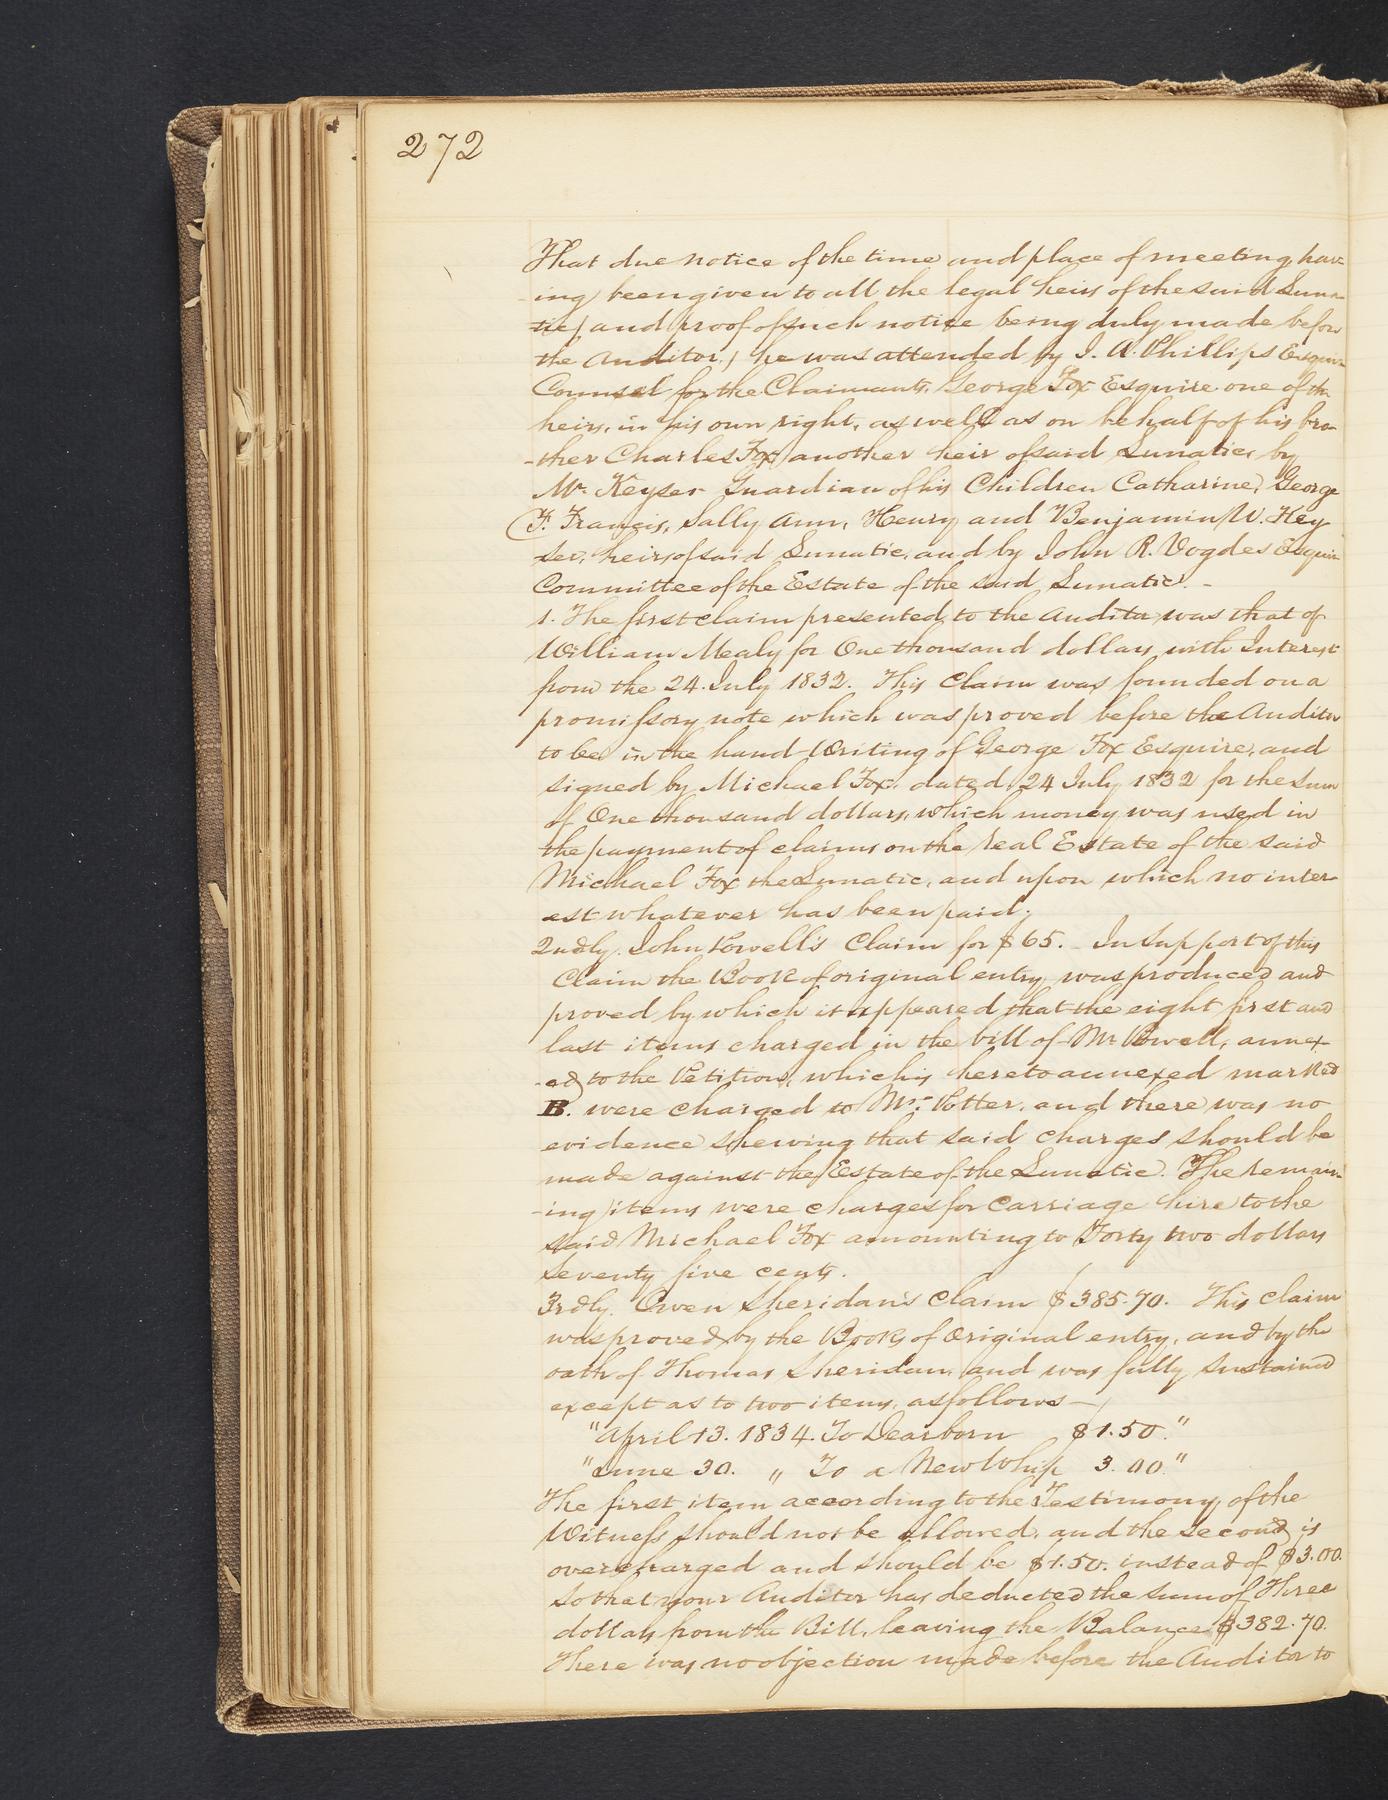 272
That due notice of the time and place of meeting hav-
ing been given to all the legal heirs of the said Luna-
tic, and proof of such notice being duly made before
the Auditor, he was attended by I. A. Phillips Esquire
Counsel for the Claimants, George Fox Esquire one of the
heirs, in his own right, as well as on behalf of his bro-
-ther Charles Fox another heir of said Lunatic, by
Mr. Keyser Guardian of his Children Catharine, George
F. Francis, Sally Ann, Henry and Benjamin W. Key
ser, heirs of said Lunatic, and by John R. Vogdes Esquire
Committee of the Estate of the said Lunatic. -
1. The first claim presented to the Auditor was that of
William Mealy for One thousand dollars with Interest
from the 24. July 1832. This Claim was founded on a
promissory note which was proved before the Auditor
to be in the hand Writing of George Fox Esquire, and
signed by Michael Fox, dated 24 July 1832 for the sum
of One thousand dollars, which money was used in
the payment of claims on the real Estate of the said
Michael Fox the Lunatic, and upon which no inter-
est whatever has been paid;
2ndly. John Powell's Claim for $65. - In Support of this
Claim the Book of original entry was produced and
proved by which it appeared that the eight first and
last items charged in the bill of Mr Powell, annex-
-ed to the Petition, which is hereto annexed marked
B. were charged to Mr. Potter, and there was no
evidence shewing that said charges should be
made against the Estate of the Lunatic. The remain-
-ing items were charges for Carriage hire to the
said Michael Fox amounting to Forty two dollars
seventy five cents.
3rdly. Owen Sheridan's Claim $385.70. This Claim
was proved by the Books of Original entry, and by the
oath of Thomas Sheridan, and was fully sustained
except as to two items, as follows -
"April 13. 1834. To Dearborn $1.50."
"June 30. " To a New Whip 3.00."
The first item according to the Testimony of the
Witness should not be allowed, and the second is
overcharged and should be $1.50. instead of $3.00.
so that your Auditor has deducted the sum of Three
dollars from the Bill, leaving the Balance $382.70.
There was no objection made before the Auditor to